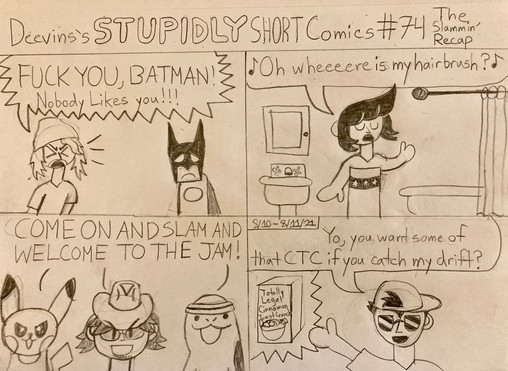 Deevins's STUPIDLY SHORT Comics #74 The
Slammin'
Recap
FUCK YOU, BATMAN!
Nobody Likes you!!!
♪Oh wheeeere is my hairbrush?♪
COME ON AND SLAM AND
WELCOME TO THE JAM!
8/10-8/11/21
Yo, you want some of
that CTC if you catch my drift?
Totally
Legal
Cinnamon
Toast Crunch